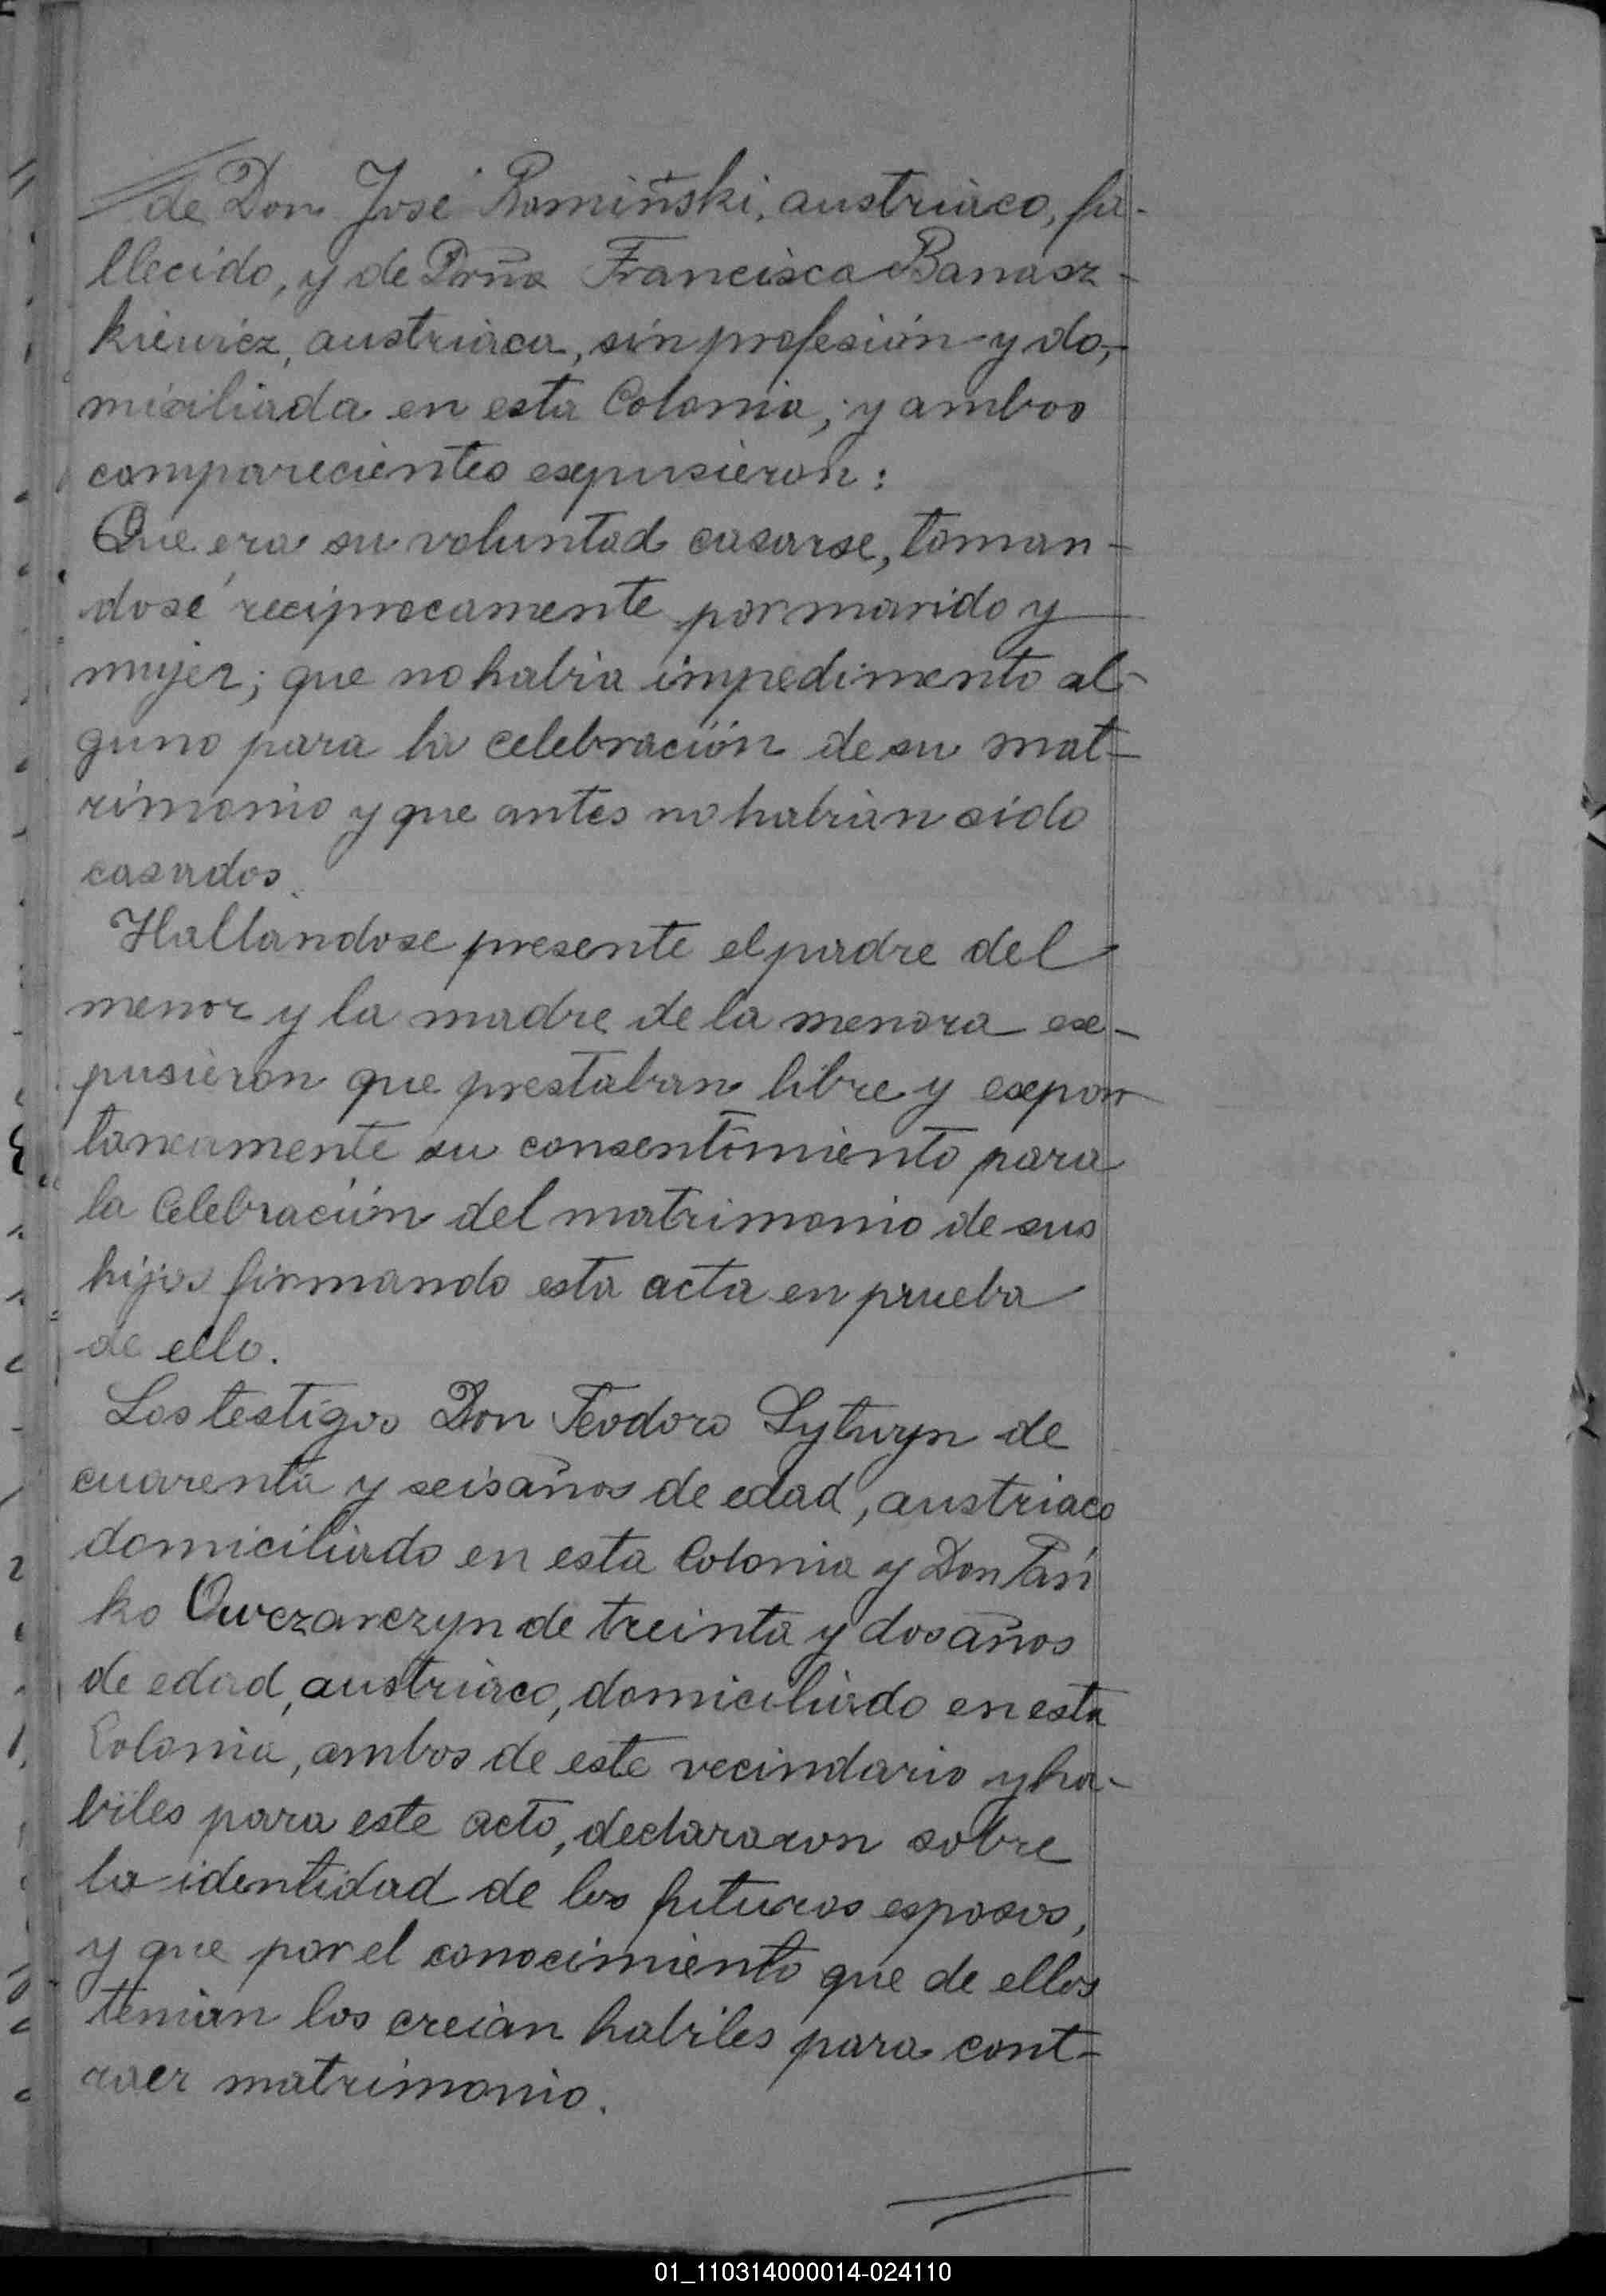 de Don José Romiński, austriaco, fa-
llecido, y de Doña Francisca Banasz-
kiewicz, austriaca, sin profesión y do-
miciliada en esta Colonia; y ambos
comparecientes expusieron:
Que era su voluntad casarse, toman-
dosé reciprocamente por marido y
mujer; que no habia impedimento al-
guno para la celebración de su mat-
rimonio y que antes no habian sido
casados.
Hallandose presente el padre del
menor y la madre de la menora ex-
pusieron que prestaban libre y expon
taneamente su consentimiento para
la Celebración del matrimonio de sus
hijos firmando esta acta en prueba
de ello.
Los testigos Don Teodoro Lytwyn de
cuarenta y seis años de edad, austriaco
domiciliado en esta Colonia y Don Pań
ko Owczarczyn de treinta y dos años
de edad, austriaco, domiciliado en esta
Colonia, ambos de este vecindario y ha-
biles para este acto, declararon sobre
la identidad de los futuros esposos,
y que por el conocimiento que de ellos
tenian los creian habiles para cont-
raer matrimonio.
01_110314000014-024110